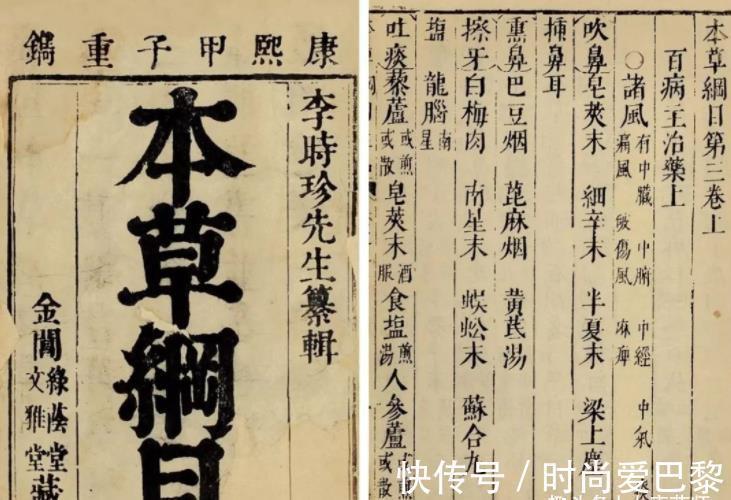 康熙甲子重鐫
李時珍先生纂輯
本草綱目
金閶
綠蔭堂
文雅堂
藏
本草綱目第三卷上
百病主治藥上
○諸風 有中臟 中腑 中經 中氣
痛風 破傷風 麻痺
吹鼻皂莢末 細辛末 半夏末 梁上塵
插鼻耳
熏鼻巴豆烟 蓖麻烟 黃芪湯
擦牙白梅肉 南星末 蜈蚣末 蘇合丸
塩 龍腦南星
吐痰藜蘆或煎或散 皂莢末酒服 食塩煎湯 人參蘆或散
快传号 / 时尚爱巴黎